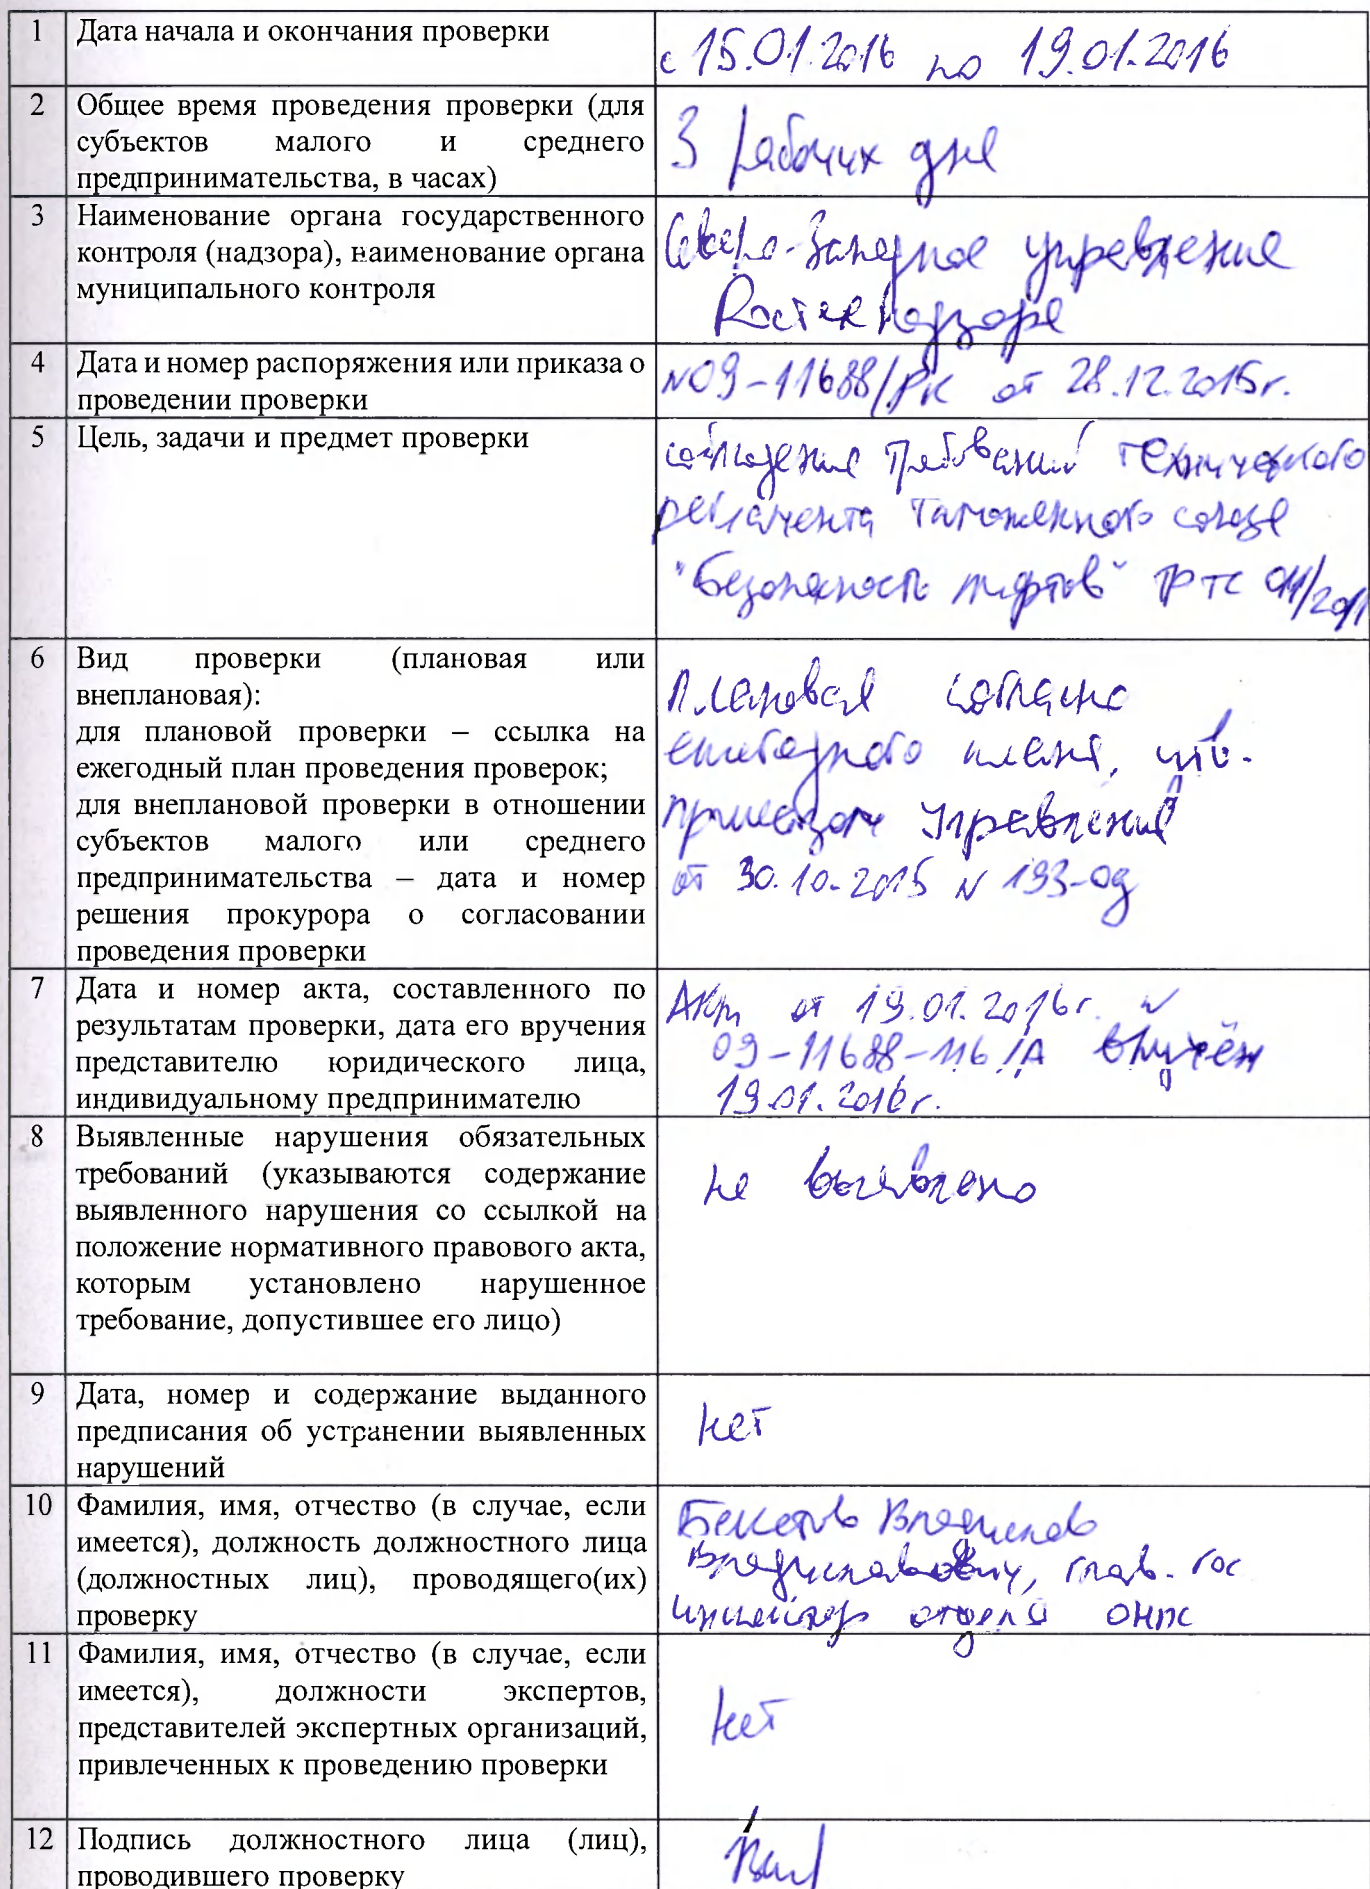 1 Дата начала и окончания проверки
с 15.01.2016 по 19.01.2016
2 Общее время проведения проверки (для
субъектов малого и среднего
предпринимательства, в часах)
3 рабочих дня
3 Наименование органа государственного
контроля (надзора), наименование органа
муниципального контроля
Северо-Западное управление
Ростехнадзора
4 Дата и номер распоряжения или приказа о
проведении проверки
№09-11688/РК от 28.12.2015г.
5 Цель, задачи и предмет проверки
соблюдение требований технического
регламента Таможенного союза
"Безопасность лифтов" ТР ТС 011/2011
6 Вид проверки (плановая или
внеплановая):
для плановой проверки – ссылка на
ежегодный план проведения проверок;
для внеплановой проверки в отношении
субъектов малого или среднего
предпринимательства – дата и номер
решения прокурора о согласовании
проведения проверки
Плановая согласно
ежегодного плана, утв.
приказом Управления
от 30.10.2015 № 193-од
7 Дата и номер акта, составленного по
результатам проверки, дата его вручения
представителю юридического лица,
индивидуальному предпринимателю
Акт от 19.01.2016г. №
09-11688-116/А вручён
19.01.2016г.
8 Выявленные нарушения обязательных
требований (указываются содержание
выявленного нарушения со ссылкой на
положение нормативного правового акта,
которым установлено нарушенное
требование, допустившее его лицо)
не выявлено
9 Дата, номер и содержание выданного
предписания об устранении выявленных
нарушений
нет
10 Фамилия, имя, отчество (в случае, если
имеется), должность должностного лица
(должностных лиц), проводящего(их)
проверку
Бекетов Владислав
Владиславович, глав. гос
инспектор отдела ОНПС
11 Фамилия, имя, отчество (в случае, если
имеется), должности экспертов,
представителей экспертных организаций,
привлеченных к проведению проверки
нет
12 Подпись должностного лица (лиц),
проводившего проверку